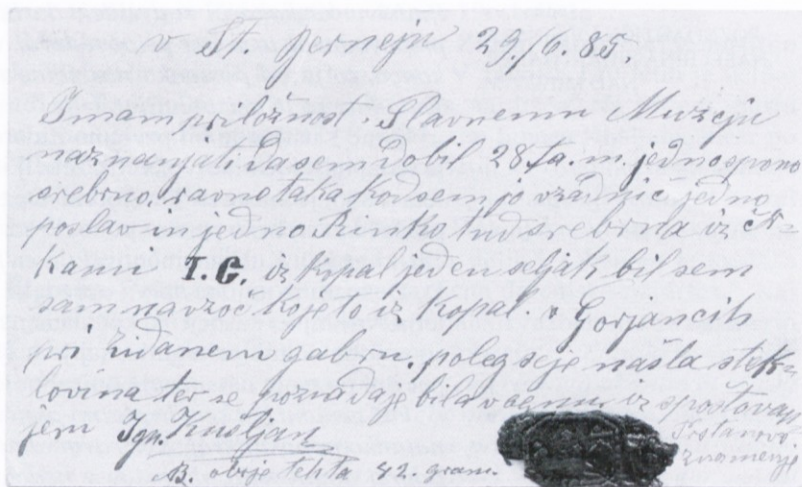 v St. Jerneju 29./6. 85.
Imam priložnost. Slavnemu Muzeju
naznanjati da sem dobil 28 ta. m. jedno spono
srebrno, ravno taka kod sem jo vzádnjič jedno
poslav in jedno Rinko tud srebrna iz čr-
kami I. G. iz kopal jeden seljak bil sem
sam navzoč koje to iz kopal. v Gorjancih
pri Zidanem gabru. poleg se je našla stek-
lovina ter se pozna da je bila v iz spoštovan
jem Ign. Kušljan
Prstanovo
znamenje
B. oboje tehta 82. gram.